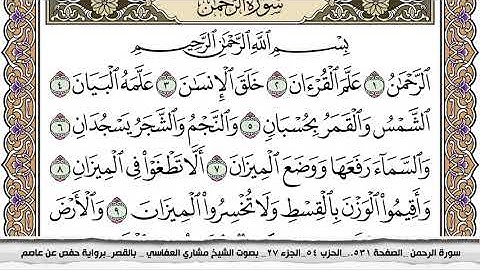 سورة الرحمن
بِسْمِ اللَّهِ الرَّحْمَٰنِ الرَّحِيمِ
الرَّحْمَٰنُ ١ عَلَّمَ الْقُرْءَانَ ٢ خَلَقَ الْإِنسَٰنَ ٣ عَلَّمَهُ الْبَيَانَ ٤
الشَّمْسُ وَالْقَمَرُ بِحُسْبَانٍ ٥ وَالنَّجْمُ وَالشَّجَرُ يَسْجُدَانِ ٦
وَالسَّمَآءَ رَفَعَهَا وَوَضَعَ الْمِيزَانَ ٧ أَلَّا تَطْغَوْا۟ فِى الْمِيزَانِ ٨
وَأَقِيمُوا۟ الْوَزْنَ بِالْقِسْطِ وَلَا تُخْسِرُوا۟ الْمِيزَانَ ٩ وَالْأَرْضَ
سورة الرحمن _ الصفحة ٥٣١.. الحزب ٥٤_الجزء ٢٧_ بصوت الشيخ مشاري العفاسي _ بالقصر_برواية حفص عن عاصم